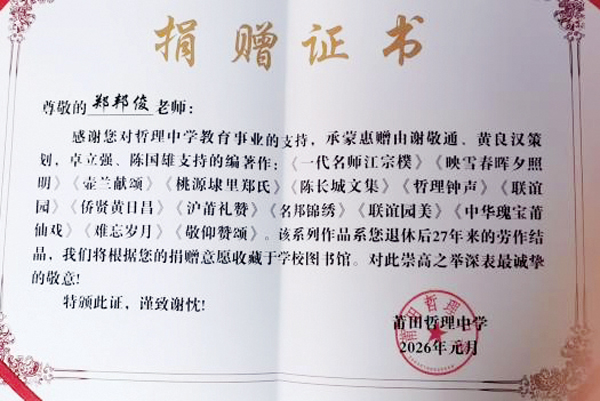 捐赠证书
尊敬的郑邦俊老师：
感谢您对哲理中学教育事业的支持，承蒙惠赠由谢敬通、黄良汉策
划，卓立强、陈国雄支持的编著作：《一代名师江宗樸》《映雪春晖夕照
明》《壶兰献颂》《桃源埭里郑氏》《陈长城文集》《哲理钟声》《联谊
园》《侨贤黄日昌》《沪莆礼赞》《名邦锦绣》《联谊园美》《中华瑰宝莆
仙戏》《难忘岁月》《敬仰赞颂》。该系列作品系您退休后27年来的劳作结
晶，我们将根据您的捐赠意愿收藏于学校图书馆。对此崇高之举深表最诚挚
的敬意!
特颁此证，谨致谢忱!
莆田哲理中学
莆田哲理中学
2026年元月